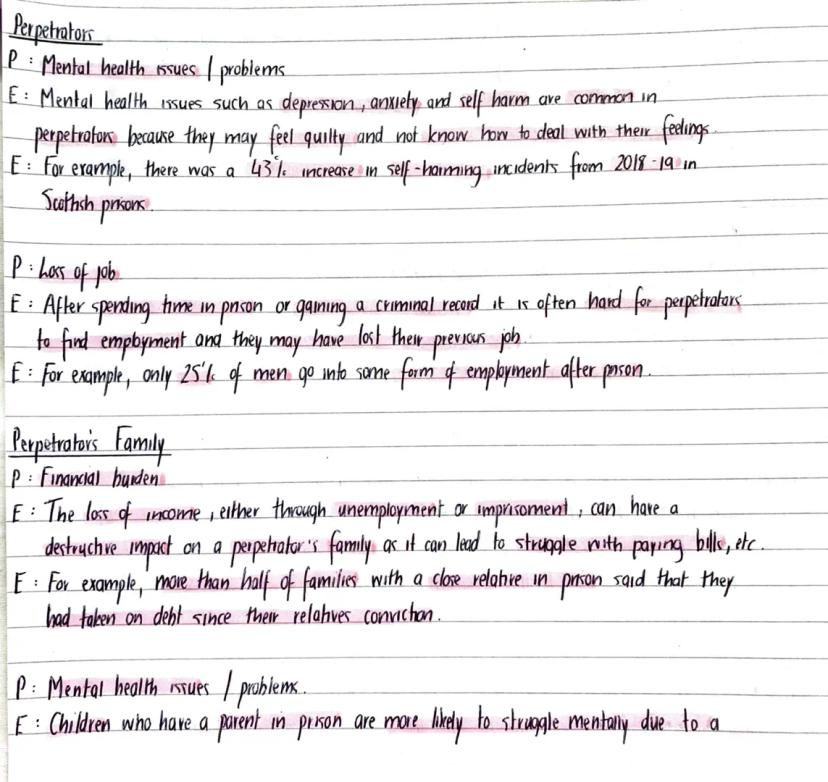 Perpetrators
P : Mental health issues / problems
E : Mental health issues such as depression, anxiety and self harm are common in
perpetrators because they may feel guilty and not know how to deal with their feelings.
E : For example, there was a 43% increase in self-harming incidents from 2018-19 in
Scottish prisons.
P : Loss of job
E : After spending time in prison or gaining a criminal record it is often hard for perpetrators
to find employment and they may have lost their previous job.
E : For example, only 25% of men go into some form of employment after prison.
Perpetrator's Family
P : Financial burden
E : The loss of income, either through unemployment or imprisoment, can have a
destructive impact on a perpetrator's family as it can lead to struggle with paying bills, etc.
E : For example, more than half of families with a close relative in prison said that they
had taken on debt since their relatives conviction.
P : Mental health issues / problems.
E : Children who have a parent in prison are more likely to struggle mentally due to a